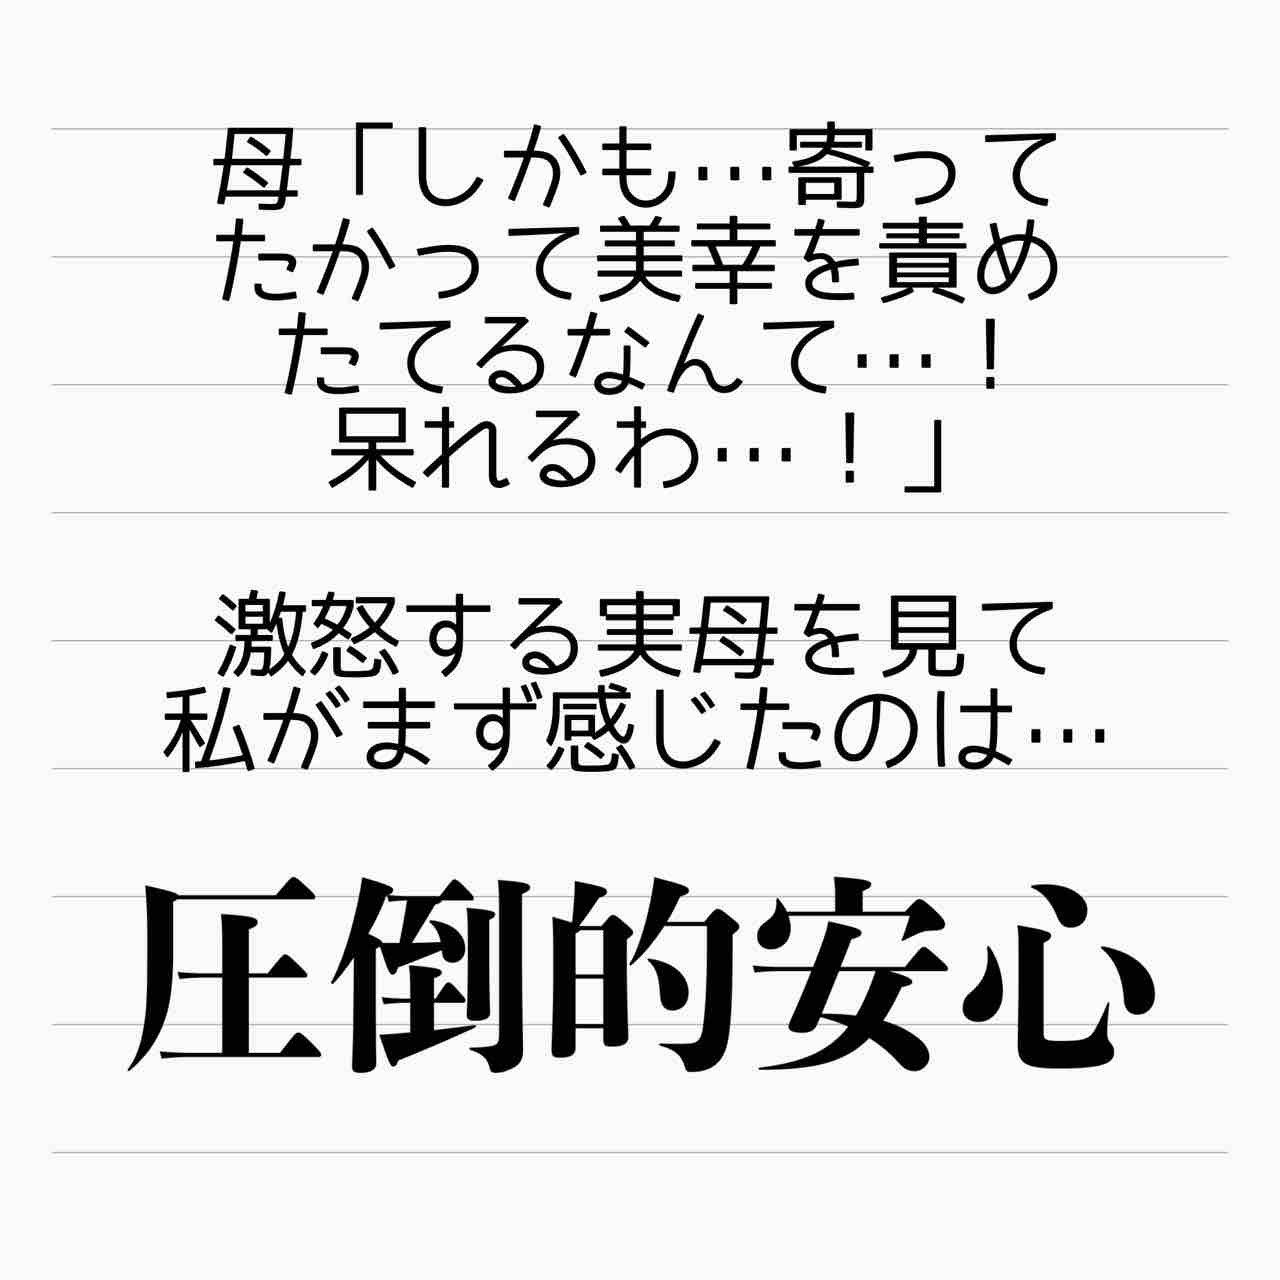 母「しかも…寄って
たかって美幸を責め
たてるなんて…！
呆れるわ…！」
激怒する実母を見て
私がまず感じたのは…
圧倒的安心